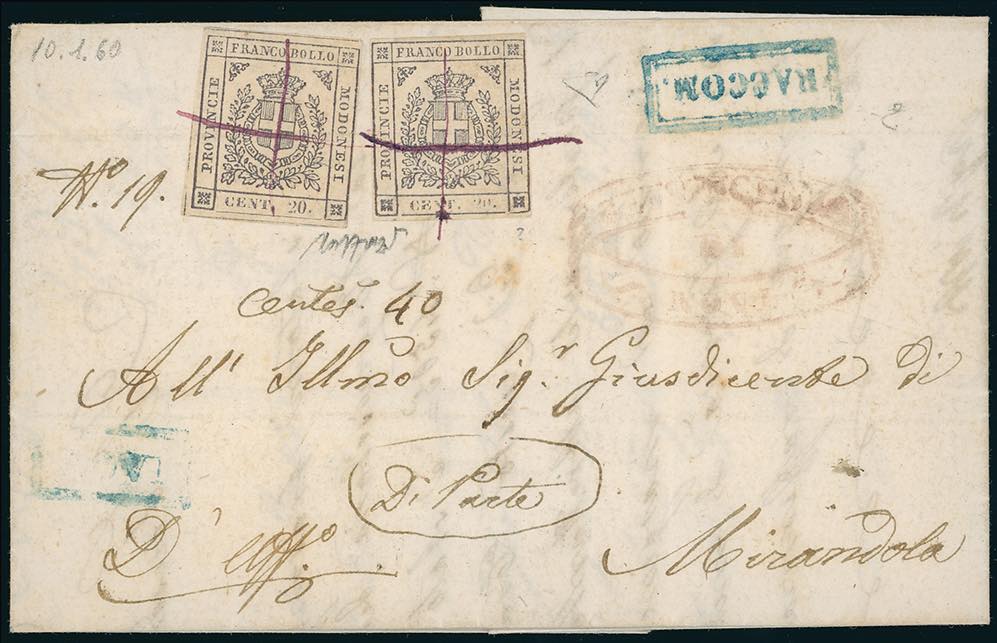 10.1.60
FRANCO BOLLO
PROVINCIE
MODONESI
CENT. 20.
FRANCO BOLLO
PROVINCIE
MODONESI
CENT. 20.
RACCOM.
2
Nº. 19.
centes. 40
All' Illmo Sigr. Giusdicente di
Di Parte
D' uff.o
Mirandola